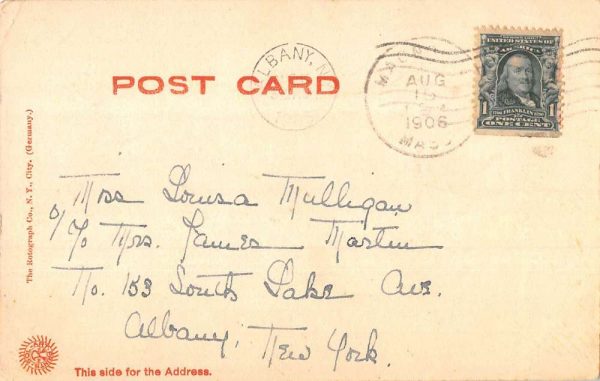 ALBANY, N.
MALD
AUG
1906
MASS
UNITED STATES OF
AMERICA
1 FRANKLIN 1
POSTAGE
ONE CENT
POST CARD
The Rotograph Co., N. Y., City. (Germany.)
Miss Louisa Mulligan
c/o Mrs. James Martin
No. 153 South Lake Ave.
Albany,
New York.
This side for the Address.